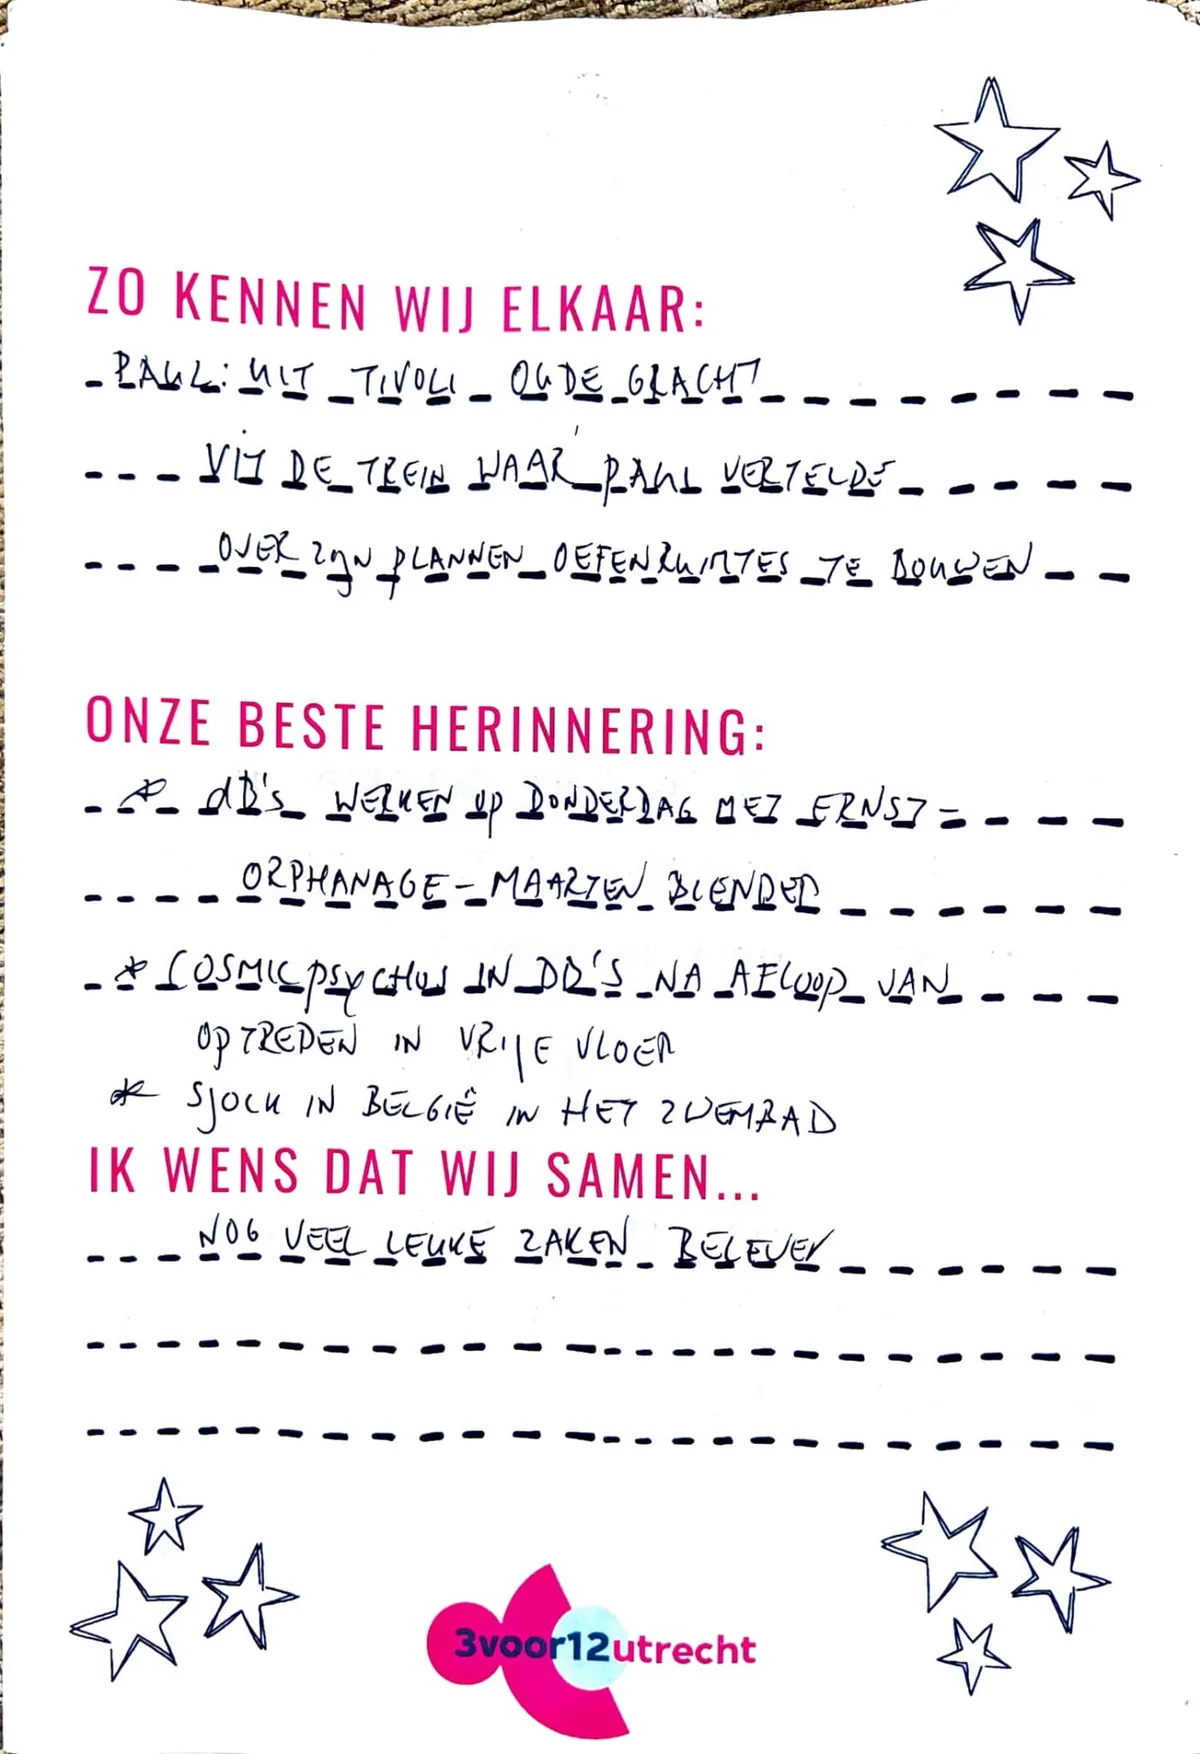 ZO KENNEN WIJ ELKAAR:
PAUL: UIT TIVOLI OUDE GRACHT
UIT DE TREIN WAAR PAUL VERTELDE
OVER ZIJN PLANNEN OEFENRUIMTES TE BOUWEN
ONZE BESTE HERINNERING:
* dB's WERKEN OP DONDERDAG MET ERNST =
ORPHANAGE - MAARTEN BLENDER
* COSMIC PSYCHOS IN DB'S NA AFLOOP VAN
OPTREDEN IN VRIJE VLOER
* SJOCK IN BELGIË IN HET ZWEMBAD
IK WENS DAT WIJ SAMEN...
NOG VEEL LEUKE ZAKEN BELEVEN
3voor12utrecht